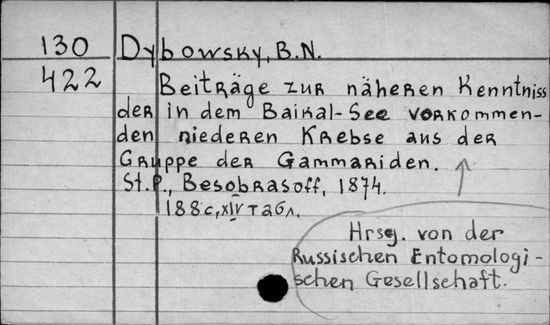 130 Dybowsky, B.N.
422 Beiträge zur näheren Kenntniss
der in dem Baikal-See vorkommen-
den niederen Krebse aus der
Gruppe der Gammariden.
St.P., Besobrasoff, 1874.
188 с, XIV табл.
Hrsg. von der
Russischen Entomologi-
schen Gesellschaft.